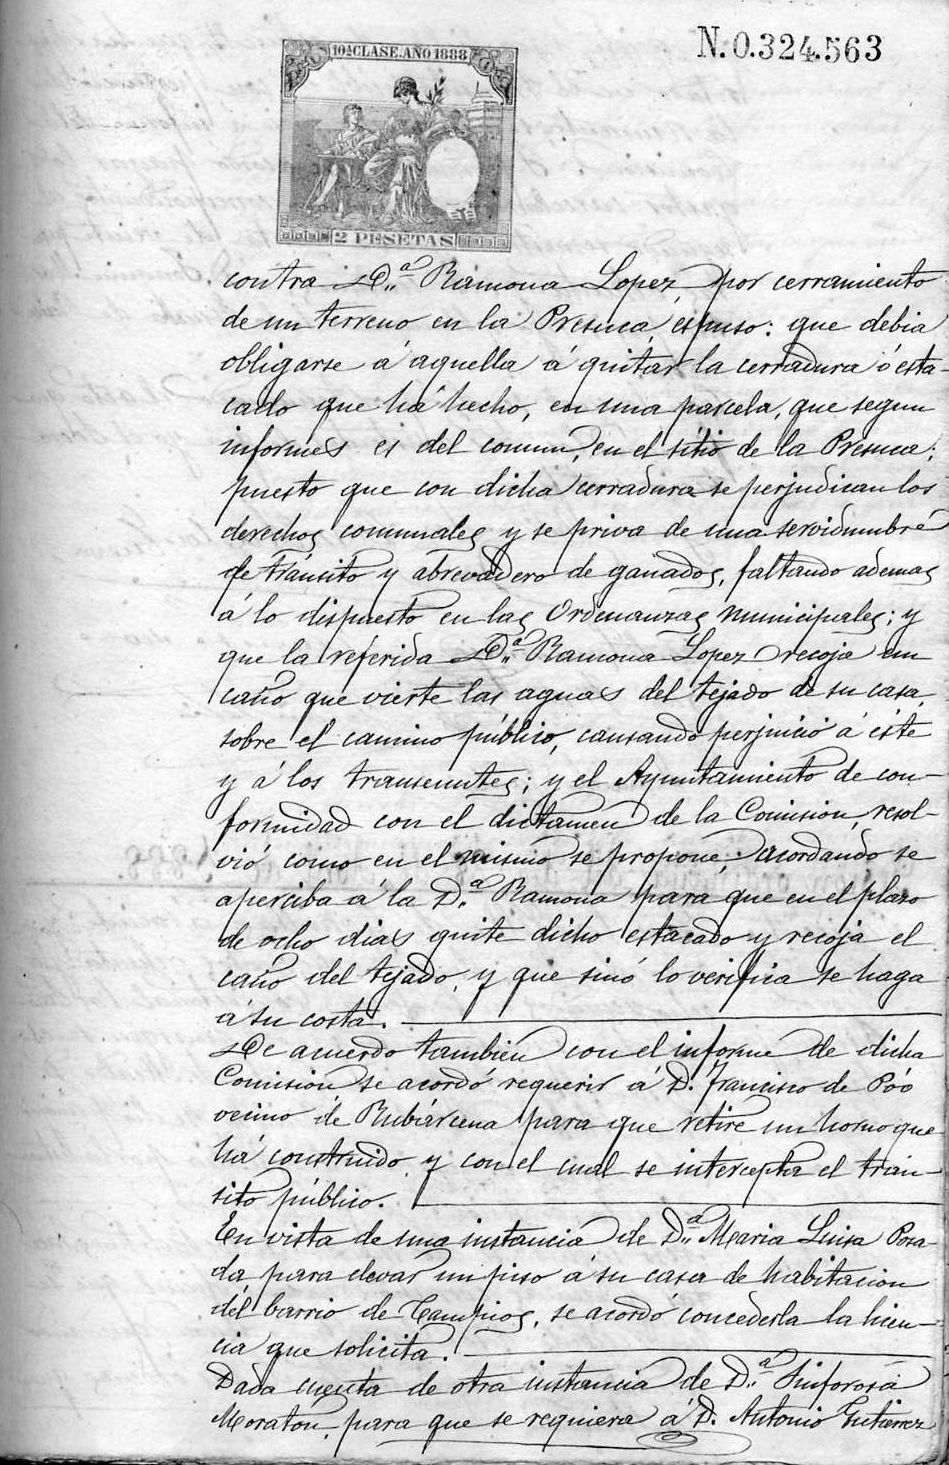 N. 0.324.563
10ª CLASE. AÑO 1888
2 PESETAS
contra D.ª Ramona Lopez, por cerramiento
de un terreno en la Presuca, espuso: que debia
obligarse á aquella á quitar la cerradura ó esta-
cado que há hecho, en una parcela, que segun
informes es del comun, en el sitio de la Presuca;
puesto que con dicha cerradura se perjudican los
derechos comunales y se priva de una servidumbre
de tránsito y abrevadero de ganados, faltando ademas
á lo dispuesto en las Ordenanzas municipales; y
que la referida D.ª Ramona Lopez recoja un
caño que vierte las aguas del tejado de su casa,
sobre el camino público, causando perjuicio á éste
y á los transeuntes; y el Ayuntamiento de con-
formidad con el dictamen de la Comision, resol-
vió como en el mismo se propone; acordando se
aperciba á la D.ª Ramona para que en el plazo
de ocho dias quite dicho estacado y recoja el
caño del tejado, y que sinó lo verifica se haga
á su costa.
De acuerdo tambien con el informe de dicha
Comision se acordó requerir á D. Francisco de Poó
vecino de Rubárcena para que retire un horno que
há construido y con el cual se intercepta el trán-
sito público.
En vista de una instancia de D.ª Maria Luisa Posa-
da, para elevar un piso á su casa de habitacion
del barrio de Campios, se acordó concederla la licen-
cia que solicita.
Dada cuenta de otra instancia de D.ª Sinforosa
Moraton, para que se requiera á D. Antonio Gutierrez